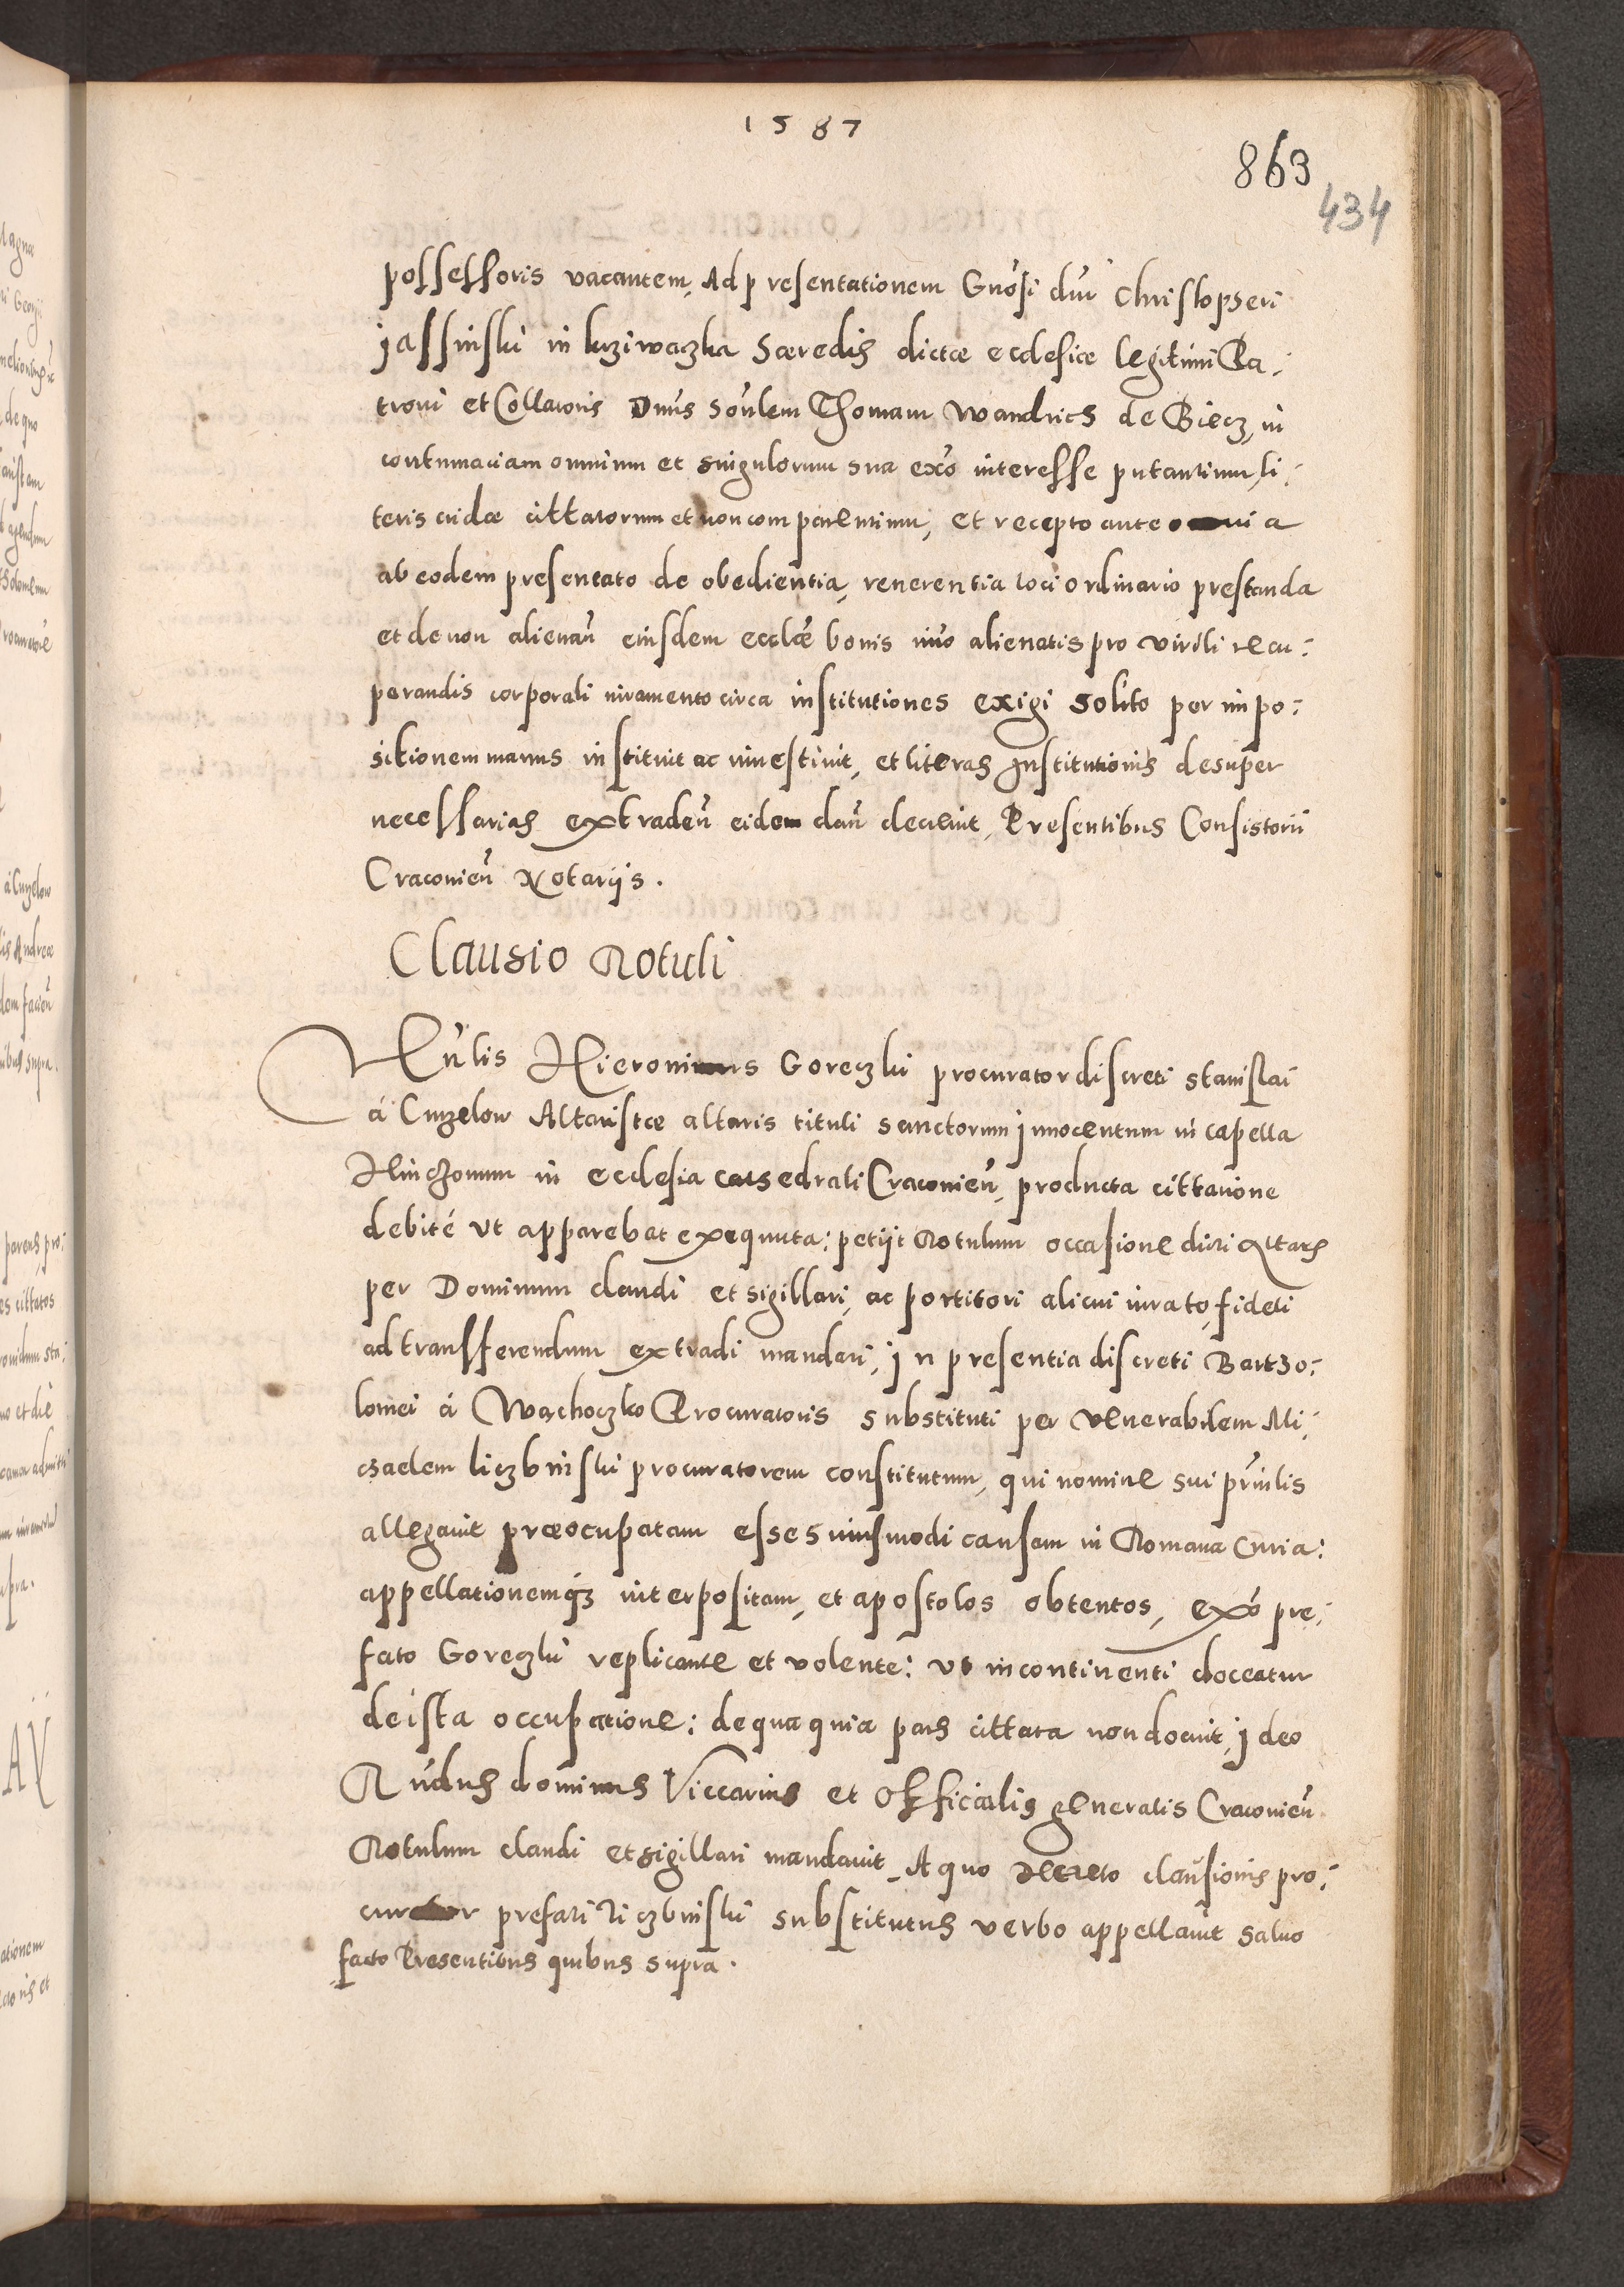 1587
863
434
possessoris vacantem, Ad presentationem Gnosi dni Christopheri
jassinski in krziwaczka hæredis dictæ ecclesiæ legitimi Pa:
troni et Collatoris Dnus honlem Thomam Wandrich de Biecz, in
contumaciam omnium et singulorum sua exo interesse putantium, li:
teris cridæ cittatorum et non comparentium, et recepto ante omnia
ab eodem presentato de obedientia, reuerentia loci ordinario prestanda
et de non alienan eiusdem ecclæ bonis imo alienatis pro virili recu:
perandis corporali iuramento circa institutiones exigi solito per impo:
sitionem manus instituit ac inuestiuit, et literas Institutionis desuper
necessarias extraden eidem dari decreuit, Presentibus Consistorii
Cracouien Notariis.
Clausio Rotuli
Hnlis Hieronimus Goreczki procurator discreti stanislai
á Curzelow Altaristæ altaris tituli sanctorum jnnocentum in capella
Hinczonum in ecclesia cathedrali Cracouien, producta cittatione
debité vt apparebat exequuta: petiit Rotulum occasione dicti Altaris
per Dominum claudi et sigillari, ac portitori alicui iurato, fideli
ad transferendum extradi mandari, jn presentia discreti Bartho:
lomei á Wąchoczko Procuratoris substituti per venerabilem Mi:
chaelem liczbinski procuratorem constitutum, qui nomine sui prinlis
allegauit præocupatam esse huiusmodi causam in Romana Curia:
appellationemqz interpositam, et apostolos obtentos, exo pre:
fato Goreczki replicante et volente: vt incontinenti doceatur
de ista occupatione: de qua quia pars cittata non docuit, jdeo
Rndus dominus Viccarius et Officialis generalis Cracouien
Rotulum claudi et sigillari mandauit, A quo decreto clausionis pro:
curator prefati liczbinski substitutus verbo appellauit saluo
facto Presentibus quibus supra.